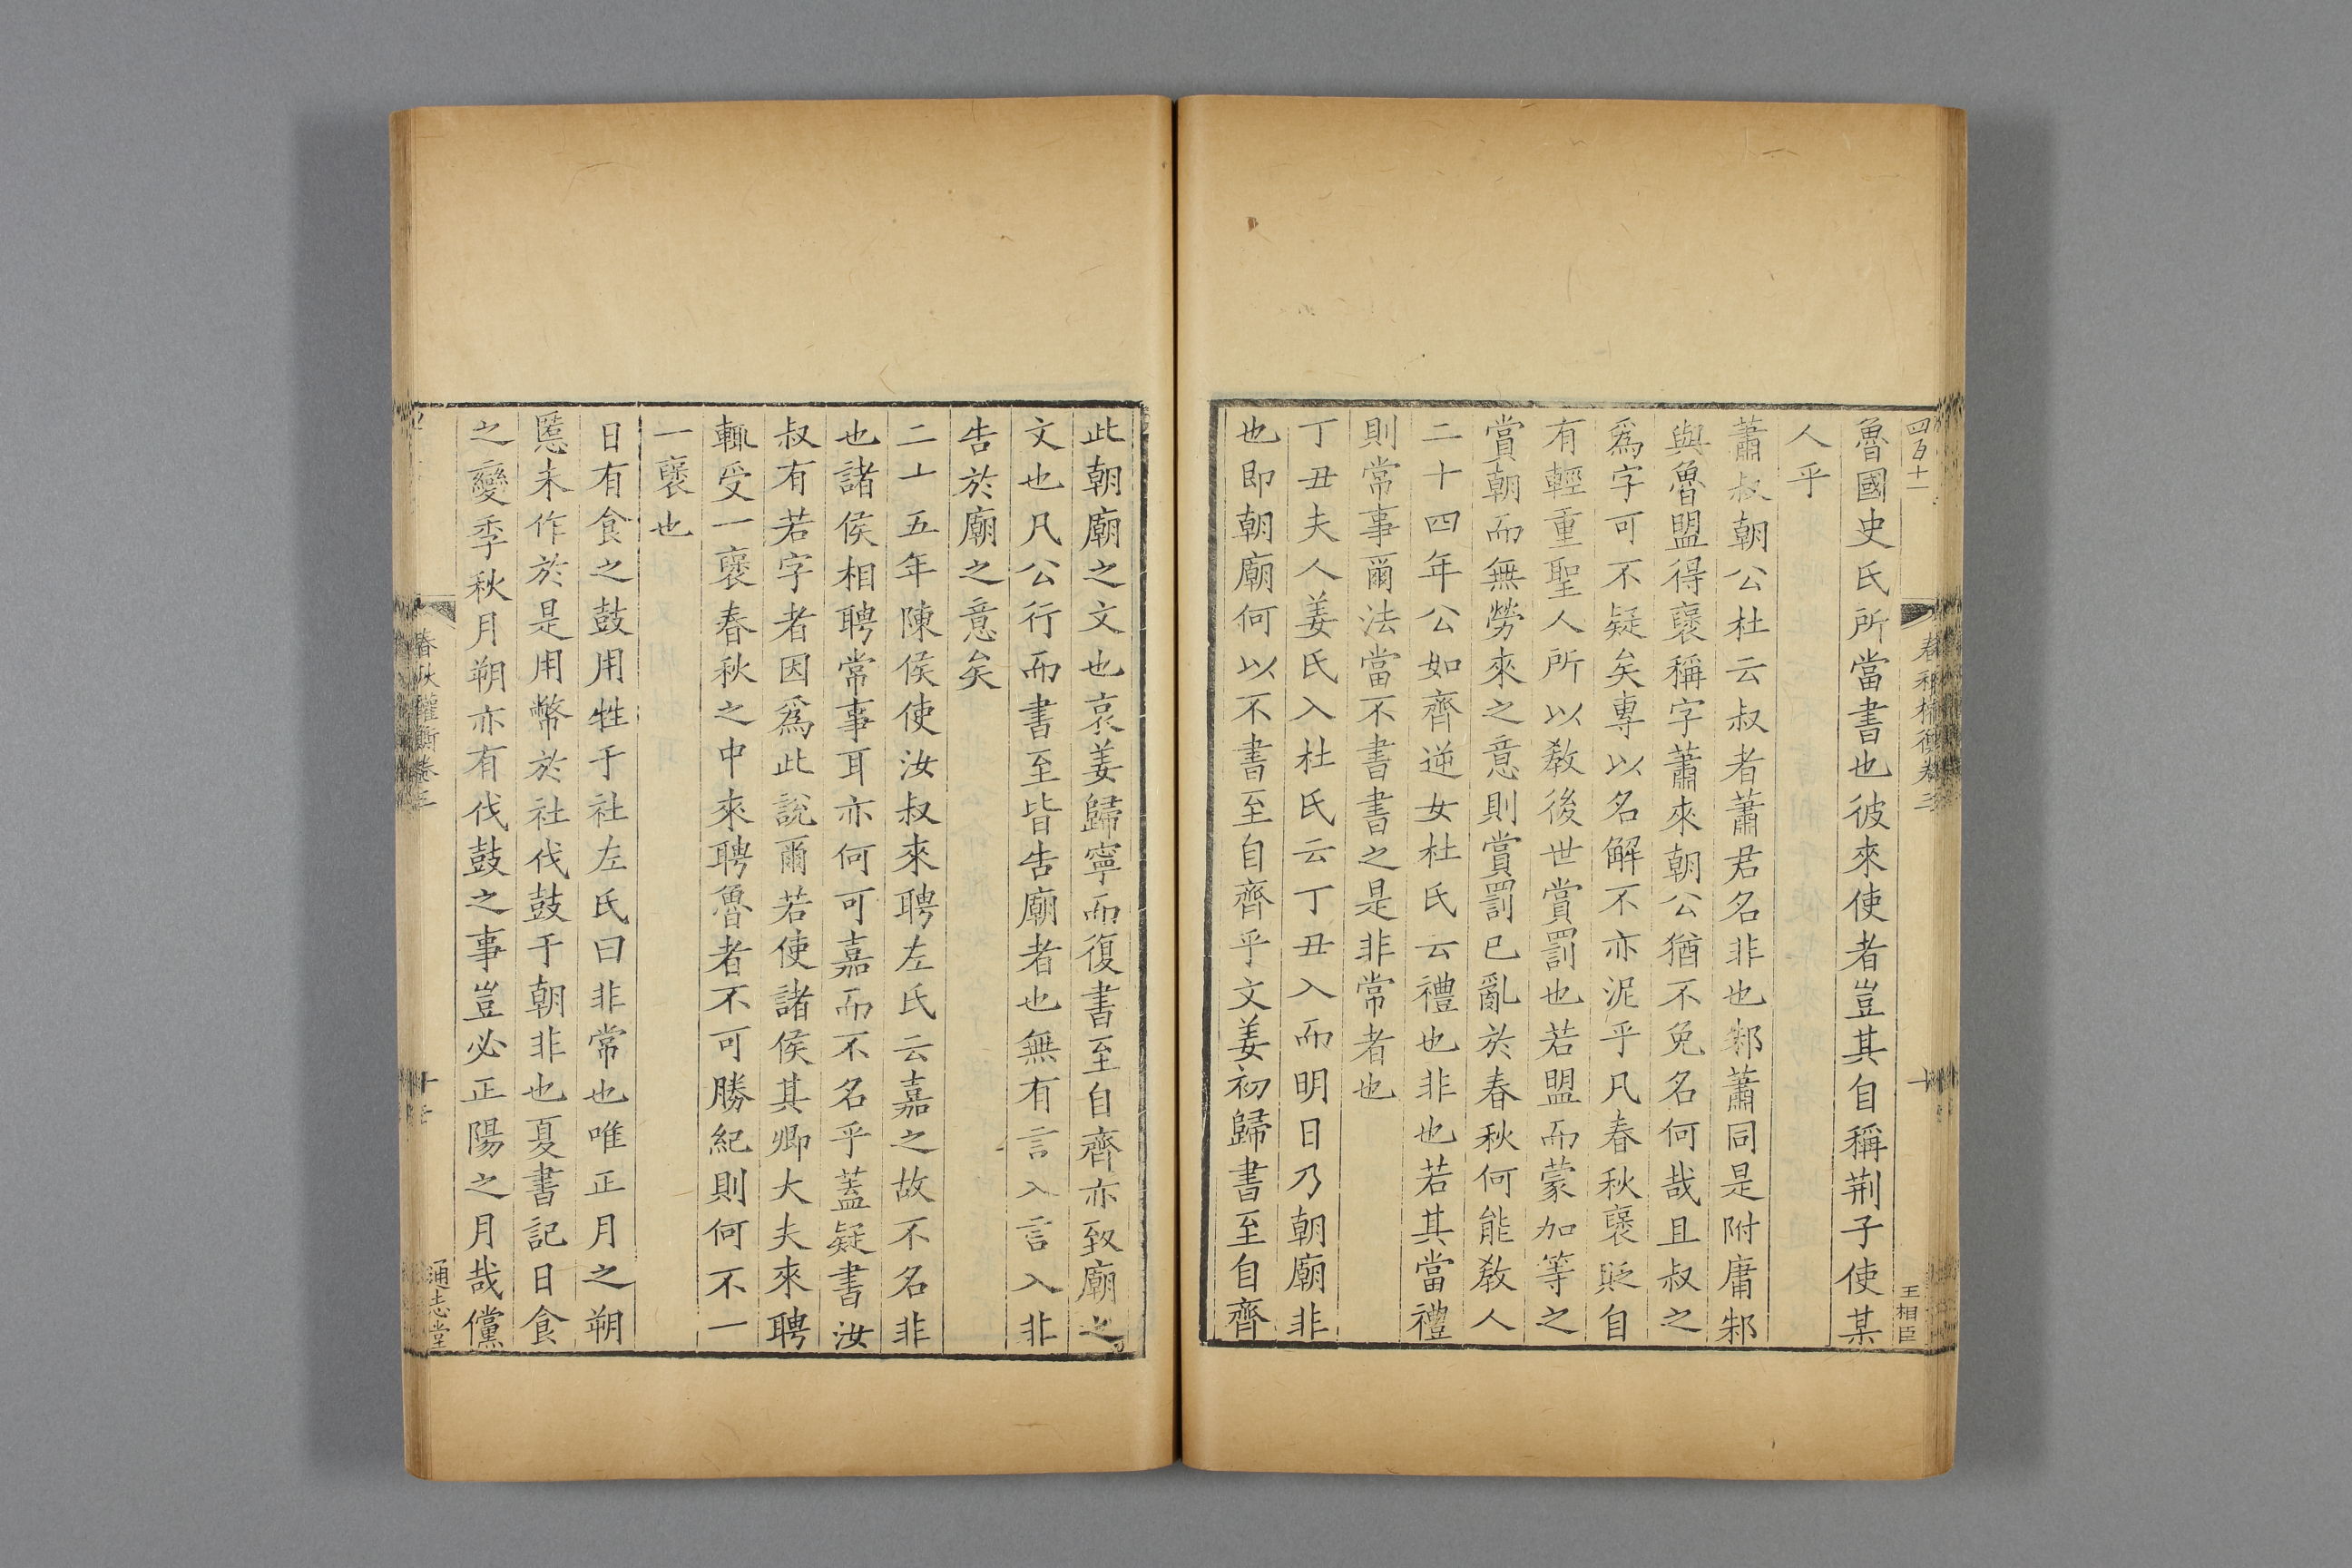 四百十一
春秋權衡卷三
十
王相臣
魯國史氏所當書也彼來使者豈其自稱荆子使某
人乎
蕭叔朝公杜云叔者蕭君名非也邾蕭同是附庸邾
與魯盟得襃稱字蕭來朝公猶不免名何哉且叔之
爲字可不疑矣專以名解不亦泥乎凡春秋襃貶自
有輕重聖人所以教後世賞罰也若盟而蒙加等之
賞朝而無勞來之意則賞罰已亂於春秋何能教人
二十四年公如齊逆女杜氏云禮也非也若其當禮
則常事爾法當不書書之是非常者也
丁丑夫人姜氏入杜氏云丁丑入而明日乃朝廟非
也即朝廟何以不書至自齊乎文姜初歸書至自齊
此朝廟之文也哀姜歸寧而復書至自齊亦致廟之
文也凡公行而書至皆告廟者也無有言入言入非
告於廟之意矣
二十五年陳侯使汝叔來聘左氏云嘉之故不名非
也諸侯相聘常事耳亦何可嘉而不名乎蓋疑書汝
叔有若字者因爲此說爾若使諸侯其卿大夫來聘
輒受一襃春秋之中來聘魯者不可勝紀則何不一
一襃也
日有食之鼓用牲于社左氏曰非常也唯正月之朔
慝未作於是用幣於社伐鼓于朝非也夏書記日食
之變季秋月朔亦有伐鼓之事豈必正陽之月哉儻
春秋權衡卷三
十
通志堂